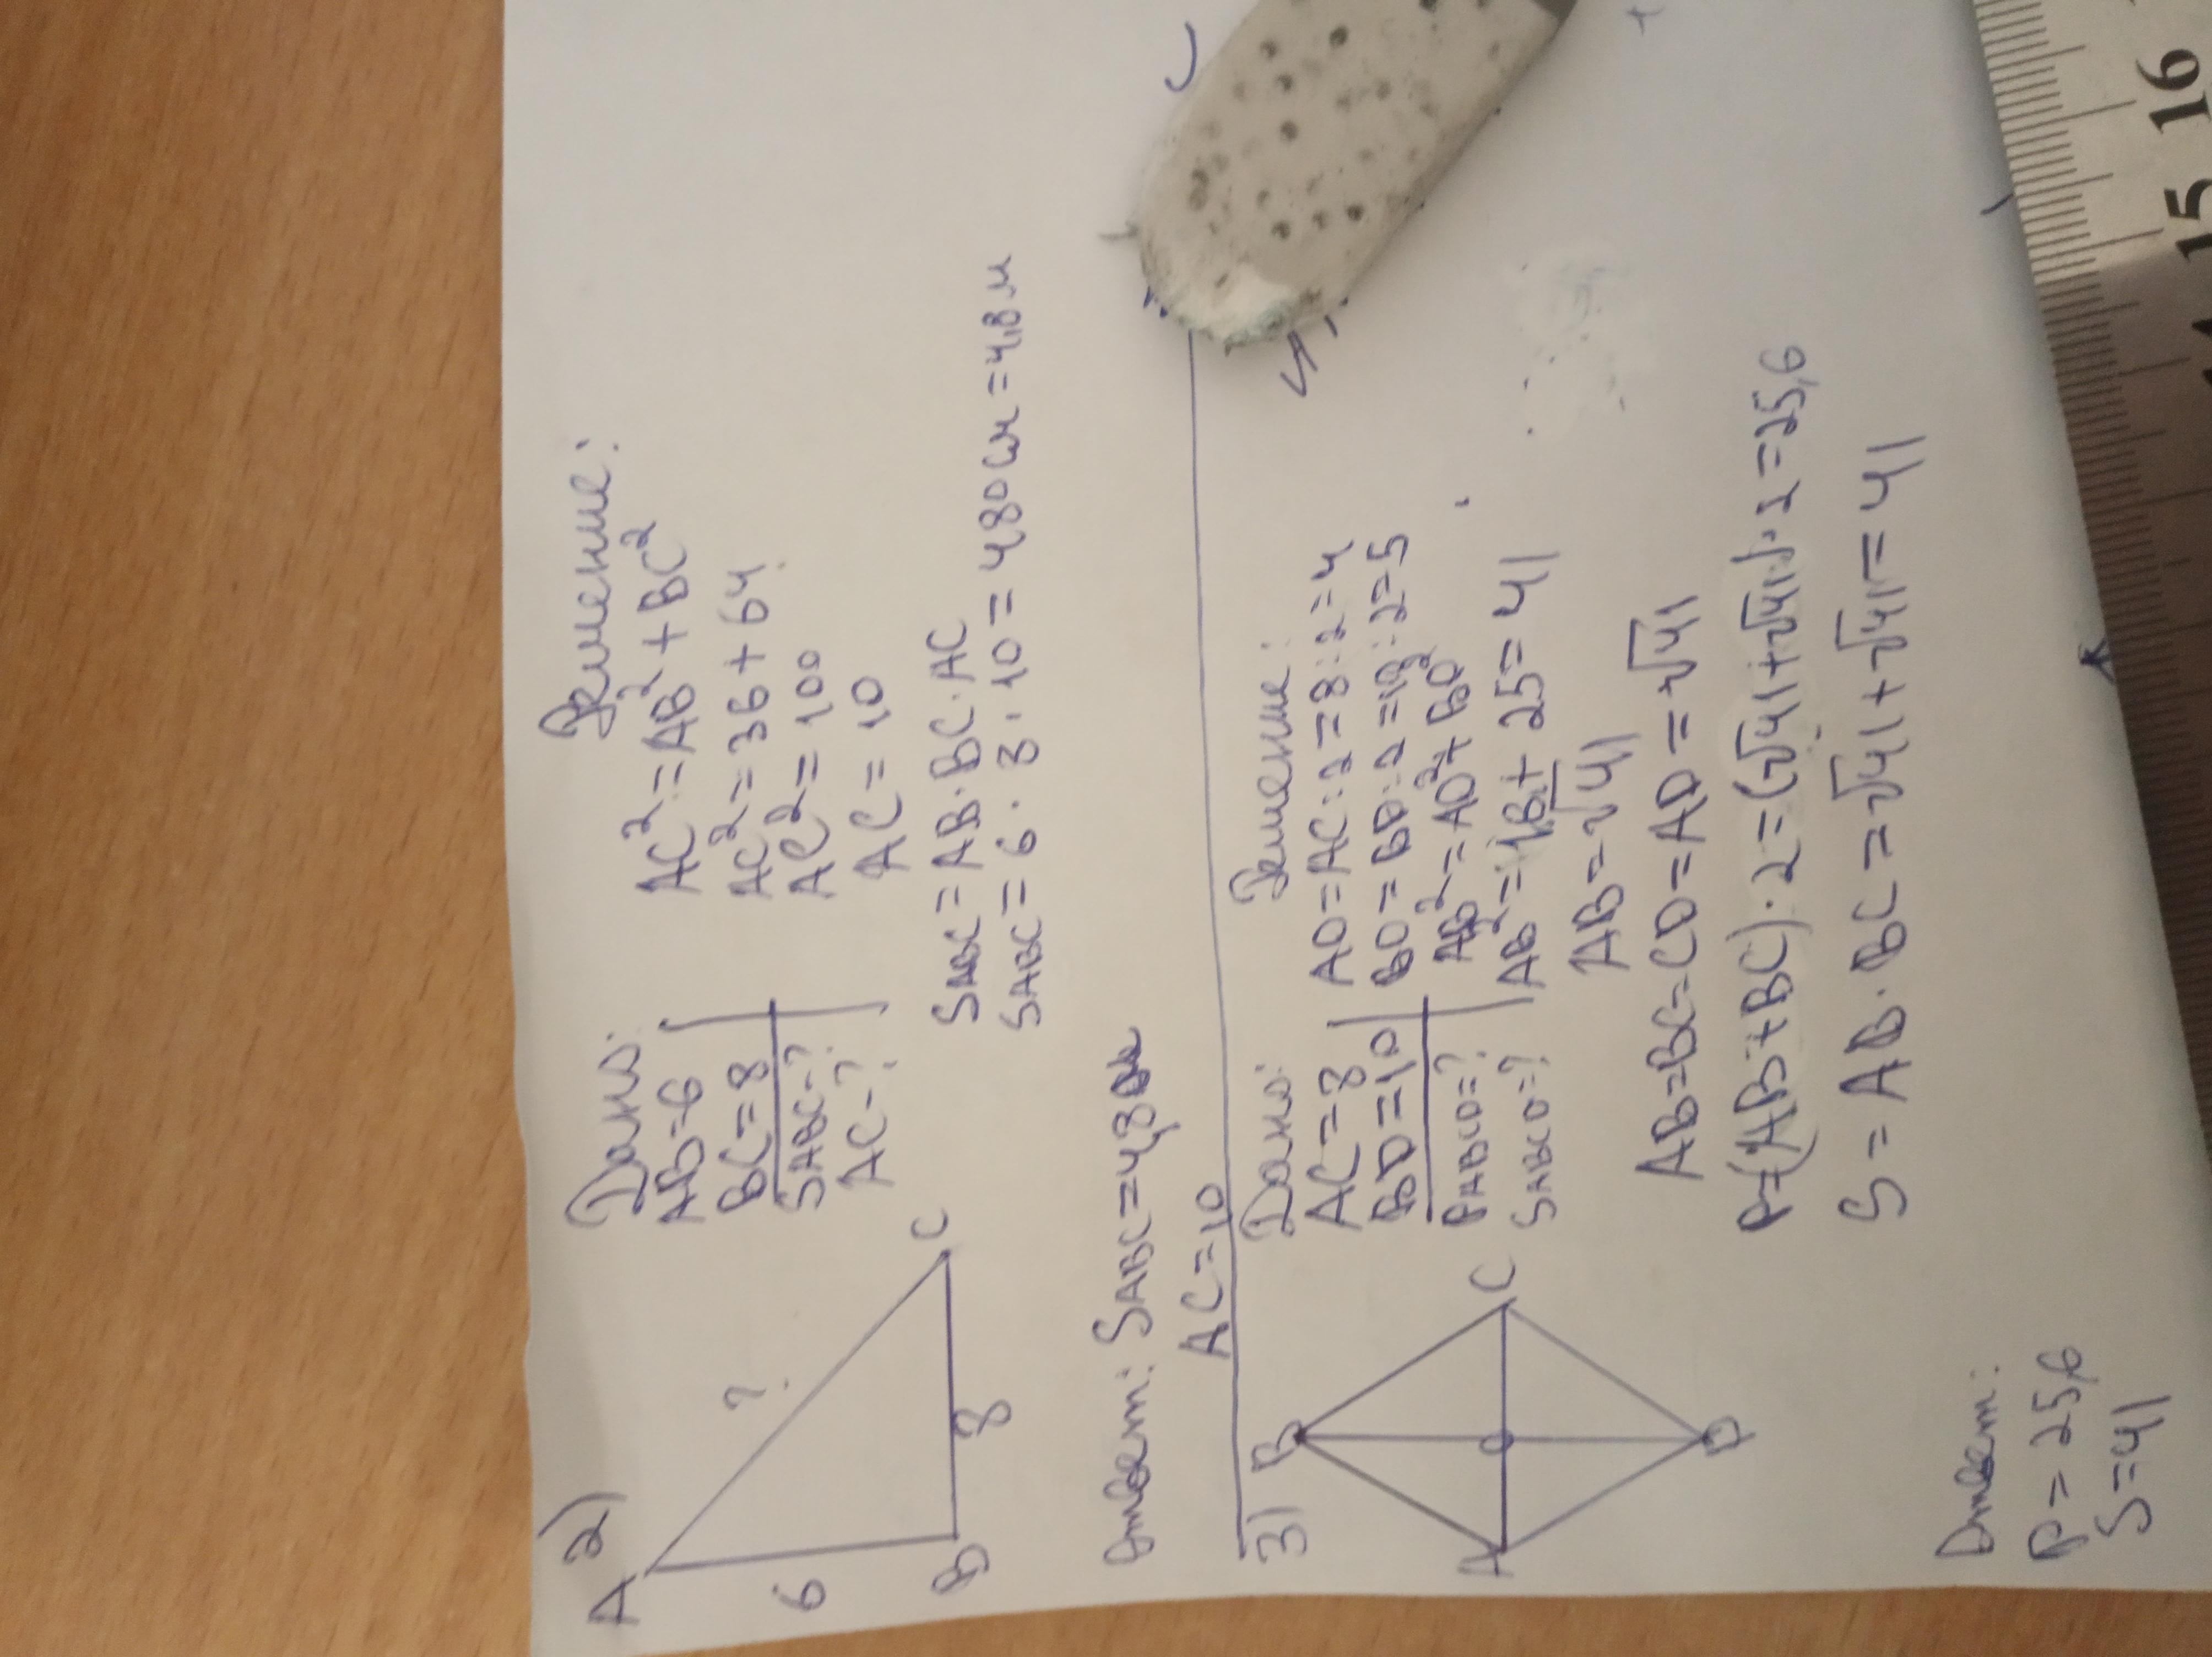 2)
A
?
6
B
8
C
Дано:
AB=6
BC=8
SABC-?
AC-?
Решение:
AC²=AB²+BC²
AC²=36+64
AC²=100
AC=10
SABC=AB·BC·AC
SABC=6·8·10=480см=4,8м
Ответ: SABC=4,8м
AC=10
3)
B
A
O
C
D
Дано:
AC=8
BD=10
PABCD=?
SABCD=?
Решение:
AO=AC:2=8:2=4
BO=BD:2=10:2=5
AB²=AO²+BO²
AB²=16+25=41
AB=√41
AB=BC=CD=AD=√41
P=(AB+BC)·2=(√41+√41)·2=25,6
S=AB·BC=√41+√41=41
Ответ:
P=25,6
S=41
15 16